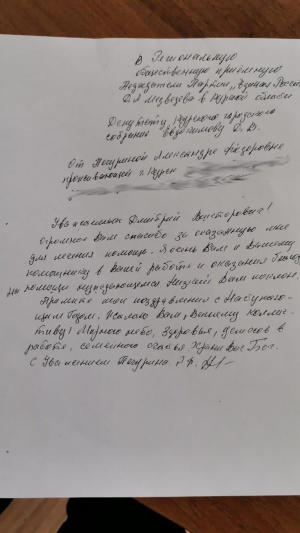 В Региональную
общественную приёмную
Председателя Партии „Единая Россия
Д.А Медведева в Курской области
Депутату, Курского городского
собрания Евдокимову Д. В.
От Пещриной Александре Фёдоровне
проживающей г. Курск
Уважаемый Дмитрий Викторович!
огромное Вам спасибо за оказанную мне
для лечения помощь. Вам и Вашему
помощнику в Вашей работе и оказания
помощи нуждающемся Низкий Вам поклон
Примите мои поздравления с Наступаю-
щим Годом. Желаю Вам, Вашему коллек-
тиву! Мирного неба, Здоровья, успехов в
работе, семейного счастья Храни Вас Бог.
С Уважением